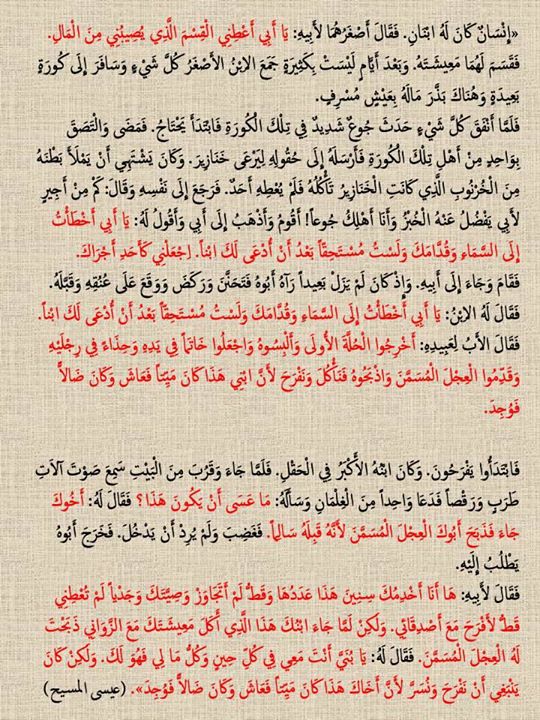 «إِنْسَانٌ كَانَ لَهُ ابْنَانِ. فَقَالَ أَصْغَرُهُمَا لأَبِيهِ: يَا أَبِي أَعْطِنِي الْقِسْمَ الَّذِي يُصِيبُنِي مِنَ الْمَالِ.
فَقَسَمَ لَهُمَا مَعِيشَتَهُ. وَبَعْدَ أَيَّامٍ لَيْسَتْ بِكَثِيرَةٍ جَمَعَ الاِبْنُ الأَصْغَرُ كُلَّ شَيْءٍ وَسَافَرَ إِلَى كُورَةٍ
بَعِيدَةٍ وَهُنَاكَ بَذَّرَ مَالَهُ بِعَيْشٍ مُسْرِفٍ.
فَلَمَّا أَنْفَقَ كُلَّ شَيْءٍ حَدَثَ جُوعٌ شَدِيدٌ فِي تِلْكَ الْكُورَةِ فَابْتَدَأَ يَحْتَاجُ. فَمَضَى وَالْتَصَقَ
بِوَاحِدٍ مِنْ أَهْلِ تِلْكَ الْكُورَةِ فَأَرْسَلَهُ إِلَى حُقُولِهِ لِيَرْعَى خَنَازِيرَ. وَكَانَ يَشْتَهِي أَنْ يَمْلَأَ بَطْنَهُ
مِنَ الْخُرْنُوبِ الَّذِي كَانَتِ الْخَنَازِيرُ تَأْكُلُهُ فَلَمْ يُعْطِهِ أَحَدٌ. فَرَجَعَ إِلَى نَفْسِهِ وَقَالَ: كَمْ مِنْ أَجِيرٍ
لأَبِي يَفْضُلُ عَنْهُ الْخُبْزُ وَأَنَا أَهْلِكُ جُوعاً! أَقُومُ وَأَذْهَبُ إِلَى أَبِي وَأَقُولُ لَهُ: يَا أَبِي أَخْطَأْتُ
إِلَى السَّمَاءِ وَقُدَّامَكَ وَلَسْتُ مُسْتَحِقّاً بَعْدُ أَنْ أُدْعَى لَكَ ابْناً. اِجْعَلْنِي كَأَحَدِ أَجْرَاكَ.
فَقَامَ وَجَاءَ إِلَى أَبِيهِ. وَإِذْ كَانَ لَمْ يَزَلْ بَعِيداً رَآهُ أَبُوهُ فَتَحَنَّنَ وَرَكَضَ وَوَقَعَ عَلَى عُنُقِهِ وَقَبَّلَهُ.
فَقَالَ لَهُ الاِبْنُ: يَا أَبِي أَخْطَأْتُ إِلَى السَّمَاءِ وَقُدَّامَكَ وَلَسْتُ مُسْتَحِقّاً بَعْدُ أَنْ أُدْعَى لَكَ ابْناً.
فَقَالَ الأَبُ لِعَبِيدِهِ: أَخْرِجُوا الْحُلَّةَ الأُولَى وَأَلْبِسُوهُ وَاجْعَلُوا خَاتَماً فِي يَدِهِ وَحِذَاءً فِي رِجْلَيْهِ
وَقَدِّمُوا الْعِجْلَ الْمُسَمَّنَ وَاذْبَحُوهُ فَنَأْكُلَ وَنَفْرَحَ لأَنَّ ابْنِي هَذَا كَانَ مَيِّتاً فَعَاشَ وَكَانَ ضَالاًّ
فَوُجِدَ.
فَابْتَدَأُوا يَفْرَحُونَ. وَكَانَ ابْنُهُ الأَكْبَرُ فِي الْحَقْلِ. فَلَمَّا جَاءَ وَقَرُبَ مِنَ الْبَيْتِ سَمِعَ صَوْتَ آلاَتِ
طَرَبٍ وَرَقْصاً فَدَعَا وَاحِداً مِنَ الْغِلْمَانِ وَسَأَلَهُ: مَا عَسَى أَنْ يَكُونَ هَذَا؟ فَقَالَ لَهُ: أَخُوكَ
جَاءَ فَذَبَحَ أَبُوكَ الْعِجْلَ الْمُسَمَّنَ لأَنَّهُ قَبِلَهُ سَالِماً. فَغَضِبَ وَلَمْ يُرِدْ أَنْ يَدْخُلَ. فَخَرَجَ أَبُوهُ
يَطْلُبُ إِلَيْهِ.
فَقَالَ لأَبِيهِ: هَا أَنَا أَخْدِمُكَ سِنِينَ هَذَا عَدَدُهَا وَقَطُّ لَمْ أَتَجَاوَزْ وَصِيَّتَكَ وَجَدْياً لَمْ تُعْطِنِي
قَطُّ لأَفْرَحَ مَعَ أَصْدِقَائِي. وَلَكِنْ لَمَّا جَاءَ ابْنُكَ هَذَا الَّذِي أَكَلَ مَعِيشَتَكَ مَعَ الزَّوَانِي ذَبَحْتَ
لَهُ الْعِجْلَ الْمُسَمَّنَ. فَقَالَ لَهُ: يَا بُنَيَّ أَنْتَ مَعِي فِي كُلِّ حِينٍ وَكُلُّ مَا لِي فَهُوَ لَكَ. وَلَكِنْ كَانَ
يَنْبَغِي أَنْ نَفْرَحَ وَنُسَرَّ لأَنَّ أَخَاكَ هَذَا كَانَ مَيِّتاً فَعَاشَ وَكَانَ ضَالاًّ فَوُجِدَ». (عيسى المسيح)